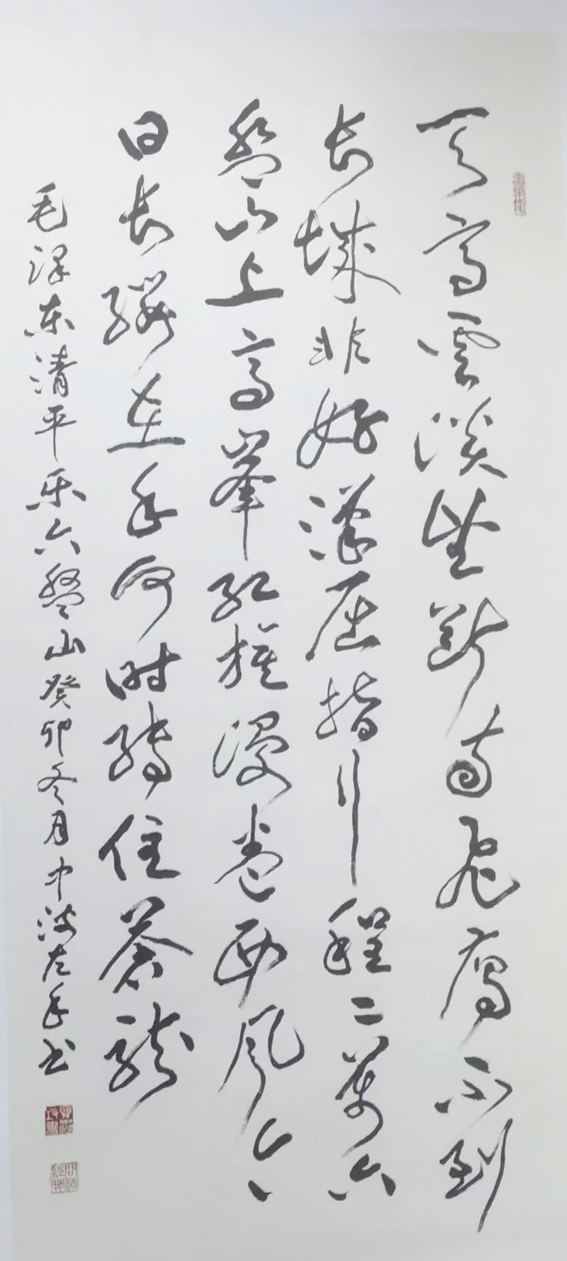 天高雲淡望斷南飛雁不到
长城非好漢屈指行程二萬六
盤山上高峯红旗漫卷西风今
日长缨在手何时缚住蒼龍
毛泽东清平乐六盤山癸卯冬月中波左手书